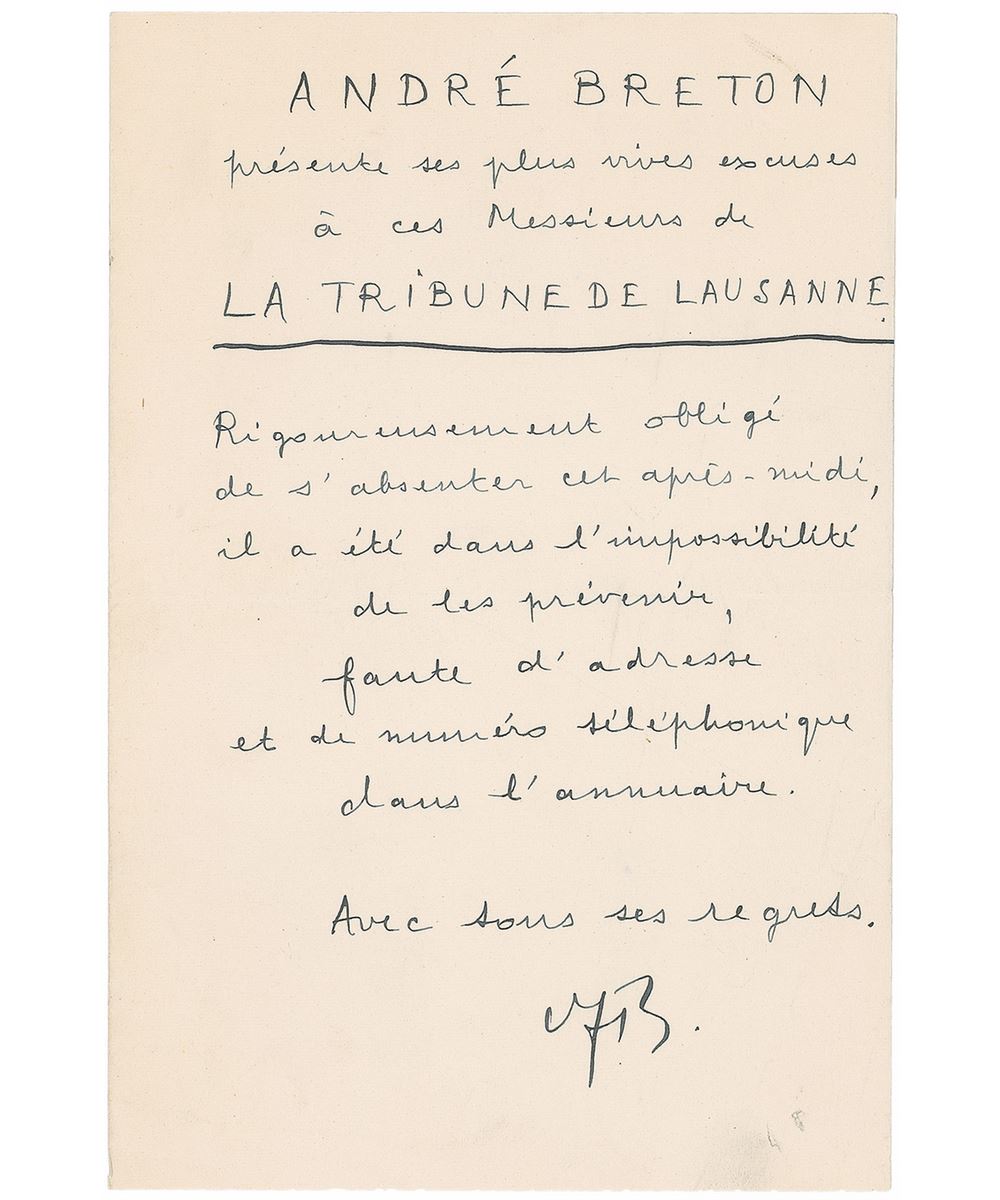 ANDRÉ BRETON
présente ses plus vives excuses
à ces Messieurs de
LA TRIBUNE DE LAUSANNE.
Rigoureusement obligé
de s'absenter cet après-midi,
il a été dans l'impossibilité
de les prévenir,
faute d'adresse
et de numéro téléphonique
dans l'annuaire.
Avec tous ses regrets.
AB.